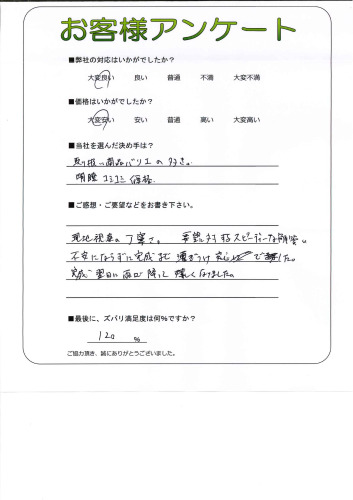 お客様アンケート
■弊社の対応はいかがでしたか？
大変良い 良い 普通 不満 大変不満
■価格はいかがでしたか？
大変安い 安い 普通 高い 大変高い
■当社を選んだ決め手は？
取り扱い商品バリエの多さ。
明瞭 コミコミ 価格。
■ご感想・ご要望などをお書き下さい。
現地視察の丁寧さ。 要望に対するスピーディーな
不安にならずに完成まで 出来ました。
完成 翌日に雨が降って 嬉しくなりました。
■最後に、ズバリ満足度は何％ですか？
120 ％
ご協力頂き、誠にありがとうございました。